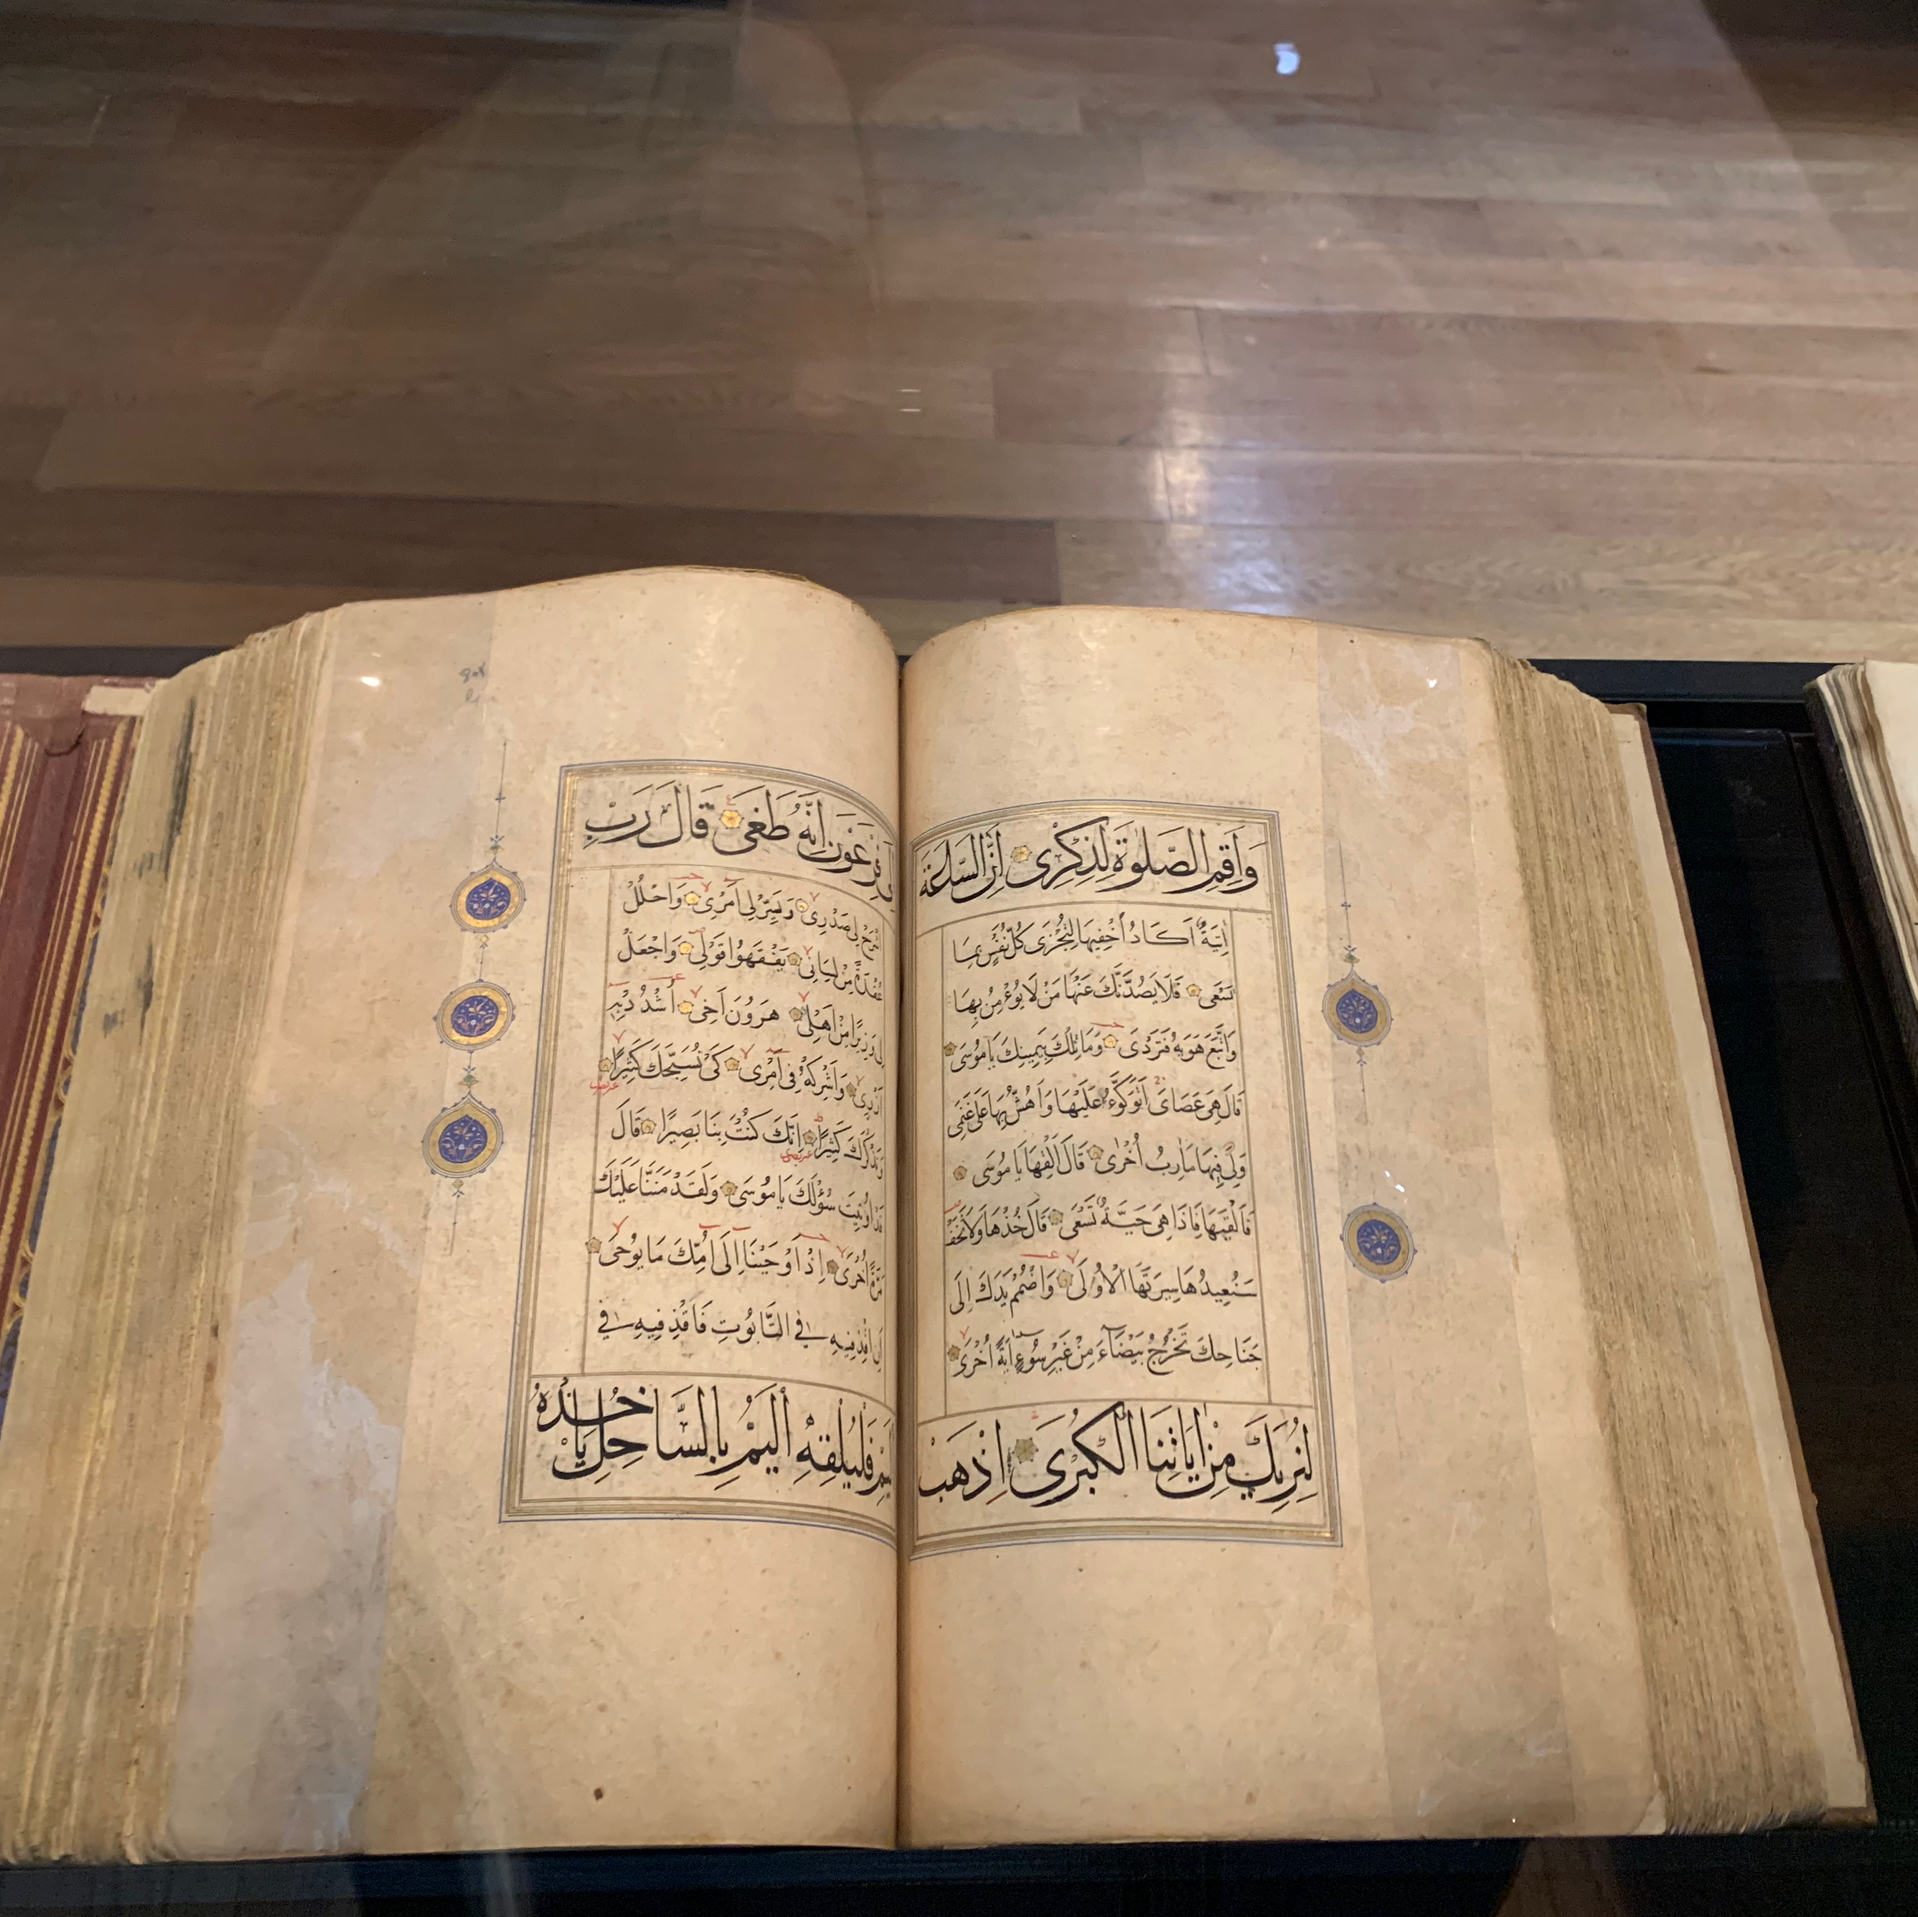 وَأَقِمِ الصَّلٰوةَ لِذِكْرِى اِنَّ السَّاعَةَ
اٰتِيَةٌ اَكَادُ أُخْفِيهَا لِتُجْزَى كُلُّ نَفْسٍ بِمَا
تَسْعَى فَلَا يَصُدَّنَّكَ عَنْهَا مَنْ لَا يُؤْمِنُ بِهَا
وَاتَّبَعَ هَوٰيهُ فَتَرْدَى وَمَا تِلْكَ بِيَمِينِكَ يَا مُوسَى
قَالَ هِىَ عَصَاىَ اَتَوَكَّؤُ عَلَيْهَا وَاَهُشُّ بِهَا عَلَى غَنَمِى
وَلِىَ فِيهَا مَاٰرِبُ اُخْرٰى قَالَ اَلْقِهَا يَا مُوسَى
فَاَلْقٰيهَا فَاِذَا هِىَ حَيَّةٌ تَسْعَى قَالَ خُذْهَا وَلَا تَخَفْ
سَنُعِيدُهَا سِيرَتَهَا الْاُولَى وَاضْمُمْ يَدَكَ اِلَى
جَنَاحِكَ تَخْرُجْ بَيْضَآءَ مِنْ غَيْرِ سُوءٍ اٰيَةً اُخْرَى
لِنُرِيَكَ مِنْ اٰيَاتِنَا الْكُبْرَى اِذْهَبْ
فِرْعَوْنَ اِنَّهُ طَغَى قَالَ رَبِّ
لِى صَدْرِى وَيَسِّرْ لِى اَمْرِى وَاحْلُلْ
عُقْدَةً مِنْ لِسَانِى يَفْقَهُوا قَوْلِى وَاجْعَلْ
لِى وَزِيرًا مِنْ اَهْلِى هَرُونَ اَخِى اُشْدُدْ بِهِ
اَزْرِى وَاَشْرِكْهُ فِى اَمْرِى كَىْ نُسَبِّحَكَ كَثِيرًا
وَنَذْكُرَكَ كَثِيرًا اِنَّكَ كُنْتَ بِنَا بَصِيرًا قَالَ
قَدْ اُوتِيتَ سُؤْلَكَ يَا مُوسَى وَلَقَدْ مَنَنَّا عَلَيْكَ
مَرَّةً اُخْرَى اِذْ اَوْحَيْنَا اِلَى اُمِّكَ مَا يُوحَى
اَنِ اقْذِفِيهِ فِى التَّابُوتِ فَاقْذِفِيهِ فِى
الْيَمِّ فَلْيُلْقِهِ الْيَمُّ بِالسَّاحِلِ يَاْخُذْهُ